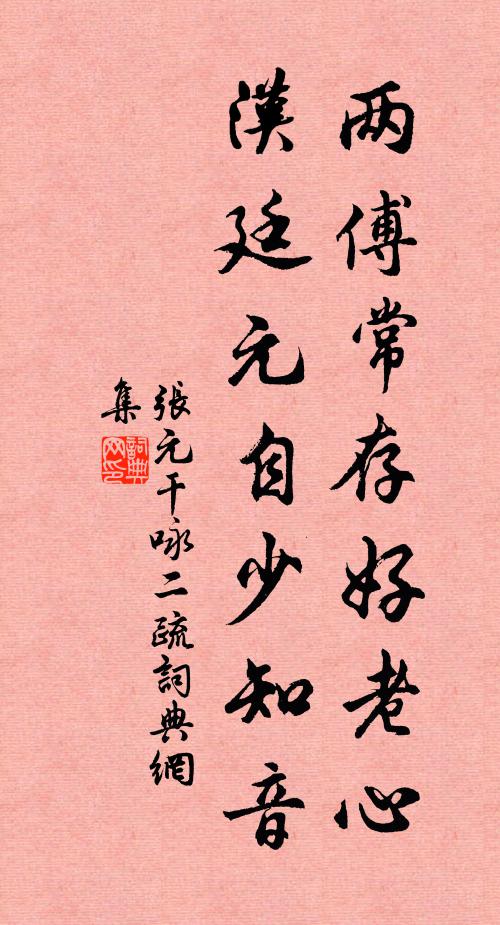 两傅常存好老心
漢廷元自少知音
張元干咏二疏詞典網
集
詞典网印